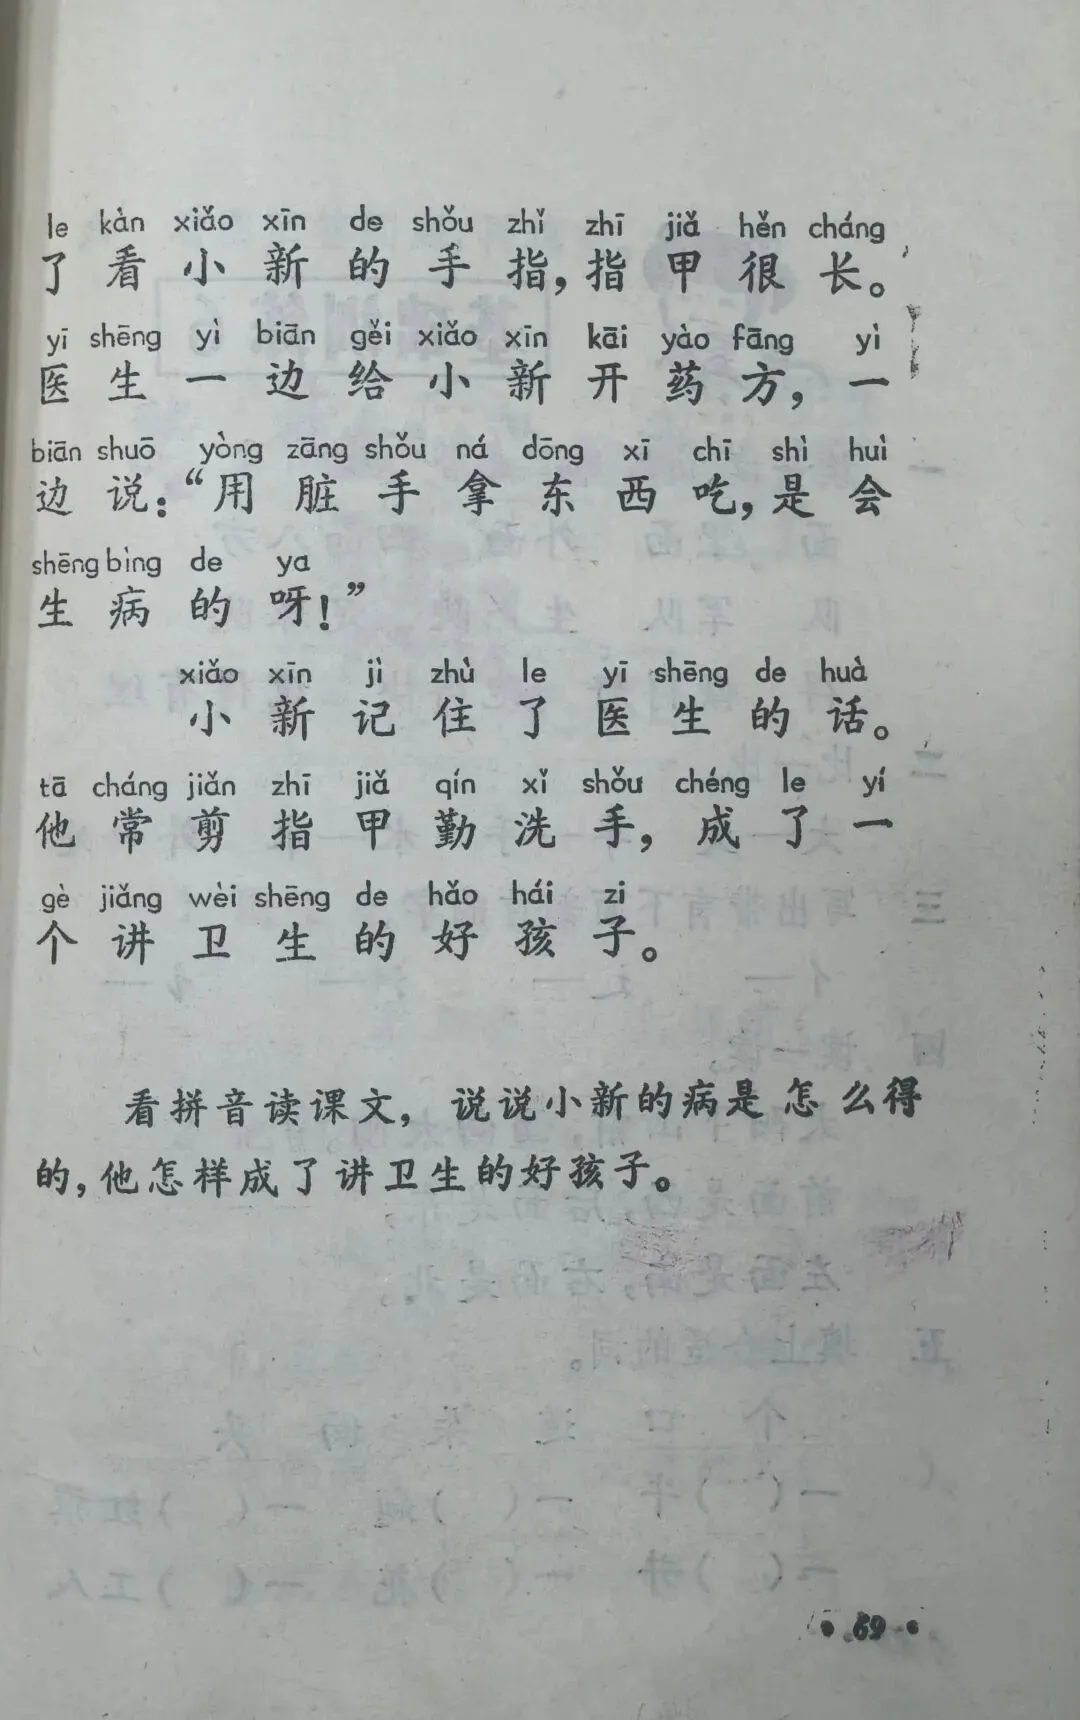 le kàn xiǎo xīn de shǒu zhǐ zhī jiǎ hěn cháng
了看小新的手指，指甲很长。
yī shēng yì biān gěi xiǎo xīn kāi yào fāng yì
医生一边给小新开药方，一
biān shuō yòng zāng shǒu ná dōng xī chī shì huì
边说：“用脏手拿东西吃，是会
shēng bìng de ya
生病的呀！”
xiǎo xīn jì zhù le yī shēng de huà
小新记住了医生的话。
tā cháng jiǎn zhī jiǎ qín xǐ shǒu chéng le yí
他常剪指甲勤洗手，成了一
gè jiǎng wèi shēng de hǎo hái zi
个讲卫生的好孩子。
看拼音读课文，说说小新的病是怎么得
的，他怎样成了讲卫生的好孩子。